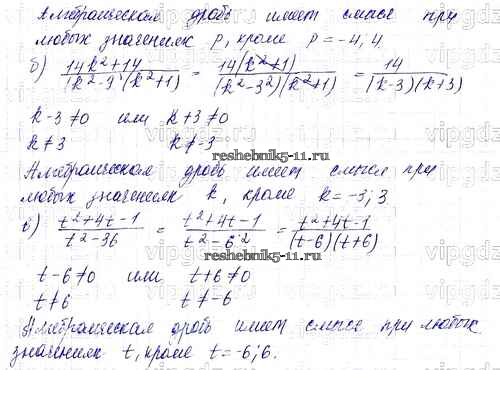 Алгебраическая дробь имеет смысл при
любых значениях p, кроме p = -4, 4.
б) (14k²+14)/((k²-9)(k²+1)) = 14(k²+1)/((k²-3²)(k²+1)) = 14/((k-3)(k+3))
k-3≠0 или k+3≠0
k≠3 k≠-3
reshebnik5-11.ru
Алгебраическая дробь имеет смысл при
любых значениях k, кроме k = -3; 3
в) (t²+4t-1)/(t²-36) = (t²+4t-1)/(t²-6²) = (t²+4t-1)/((t-6)(t+6))
reshebnik5-11.ru
t-6≠0 или t+6≠0
t≠6 t≠-6
Алгебраическая дробь имеет смысл при любых
значениях t, кроме t = -6; 6.